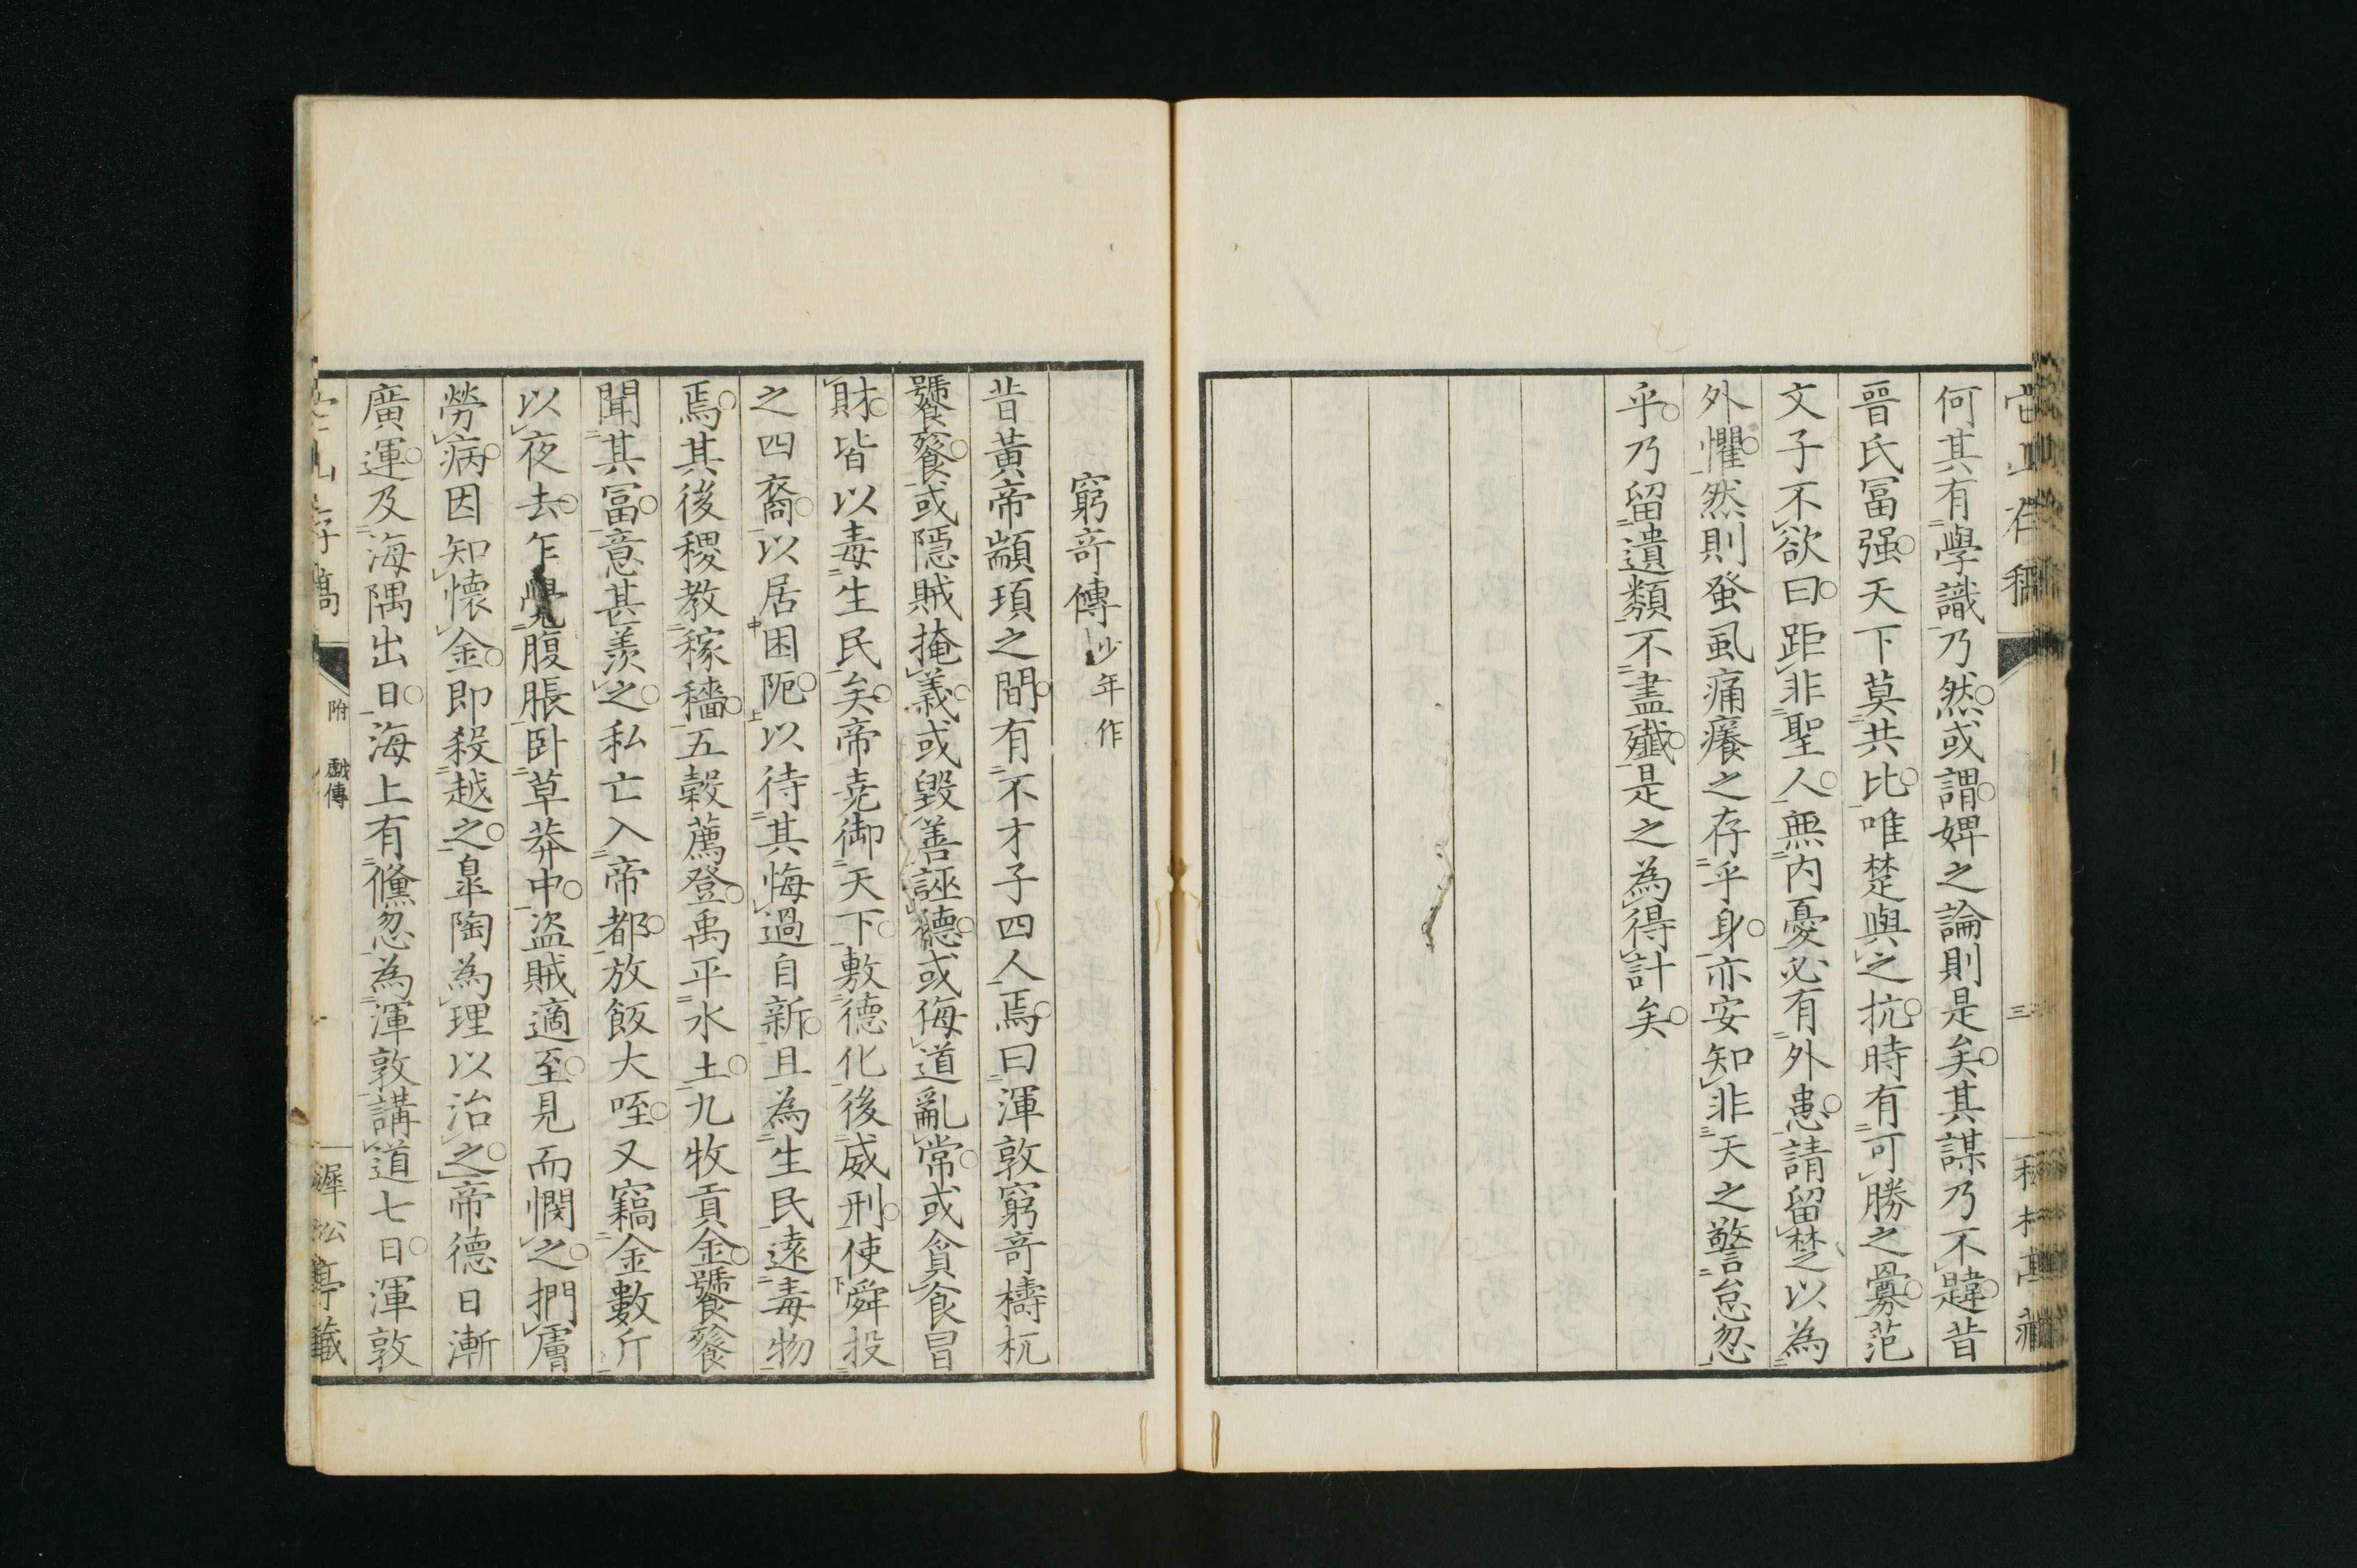 何其有學識乃然或謂婢之論則是矣其謀乃不韙昔
晉氏冨强天下莫共比唯楚與之抗時有可勝之釁范
文子不欲曰距非聖人無内憂必有外患請留楚以為
外懼然則蚤虱痛癢之存乎身亦安知非天之警怠忽
乎乃留遺類不盡殱是之為得計矣
窮竒傳 少年作
昔黃帝顓頊之間有不才子四人焉曰渾敦窮竒檮杌
饕餮或隱賊掩義或毀善誣德或侮道亂常或貪食冒
財皆以毒生民矣帝堯御天下敷德化後威刑使舜投
之四裔以居困阨以待其悔過自新且為生民遠毒物
焉其後稷教稼穡五穀薦登禹平水土九牧貢金饕餮
聞其冨意甚羨之私亡入帝都放飯大咥又竊金數斤
以夜去乍覺腹脹卧草莽中盜賊適至見而憫之捫膚
勞病因知懐金即殺越之皐陶為理以治之帝德日漸
廣運及海隅出日海上有儵忽為渾敦講道七日渾敦
附 戲傳